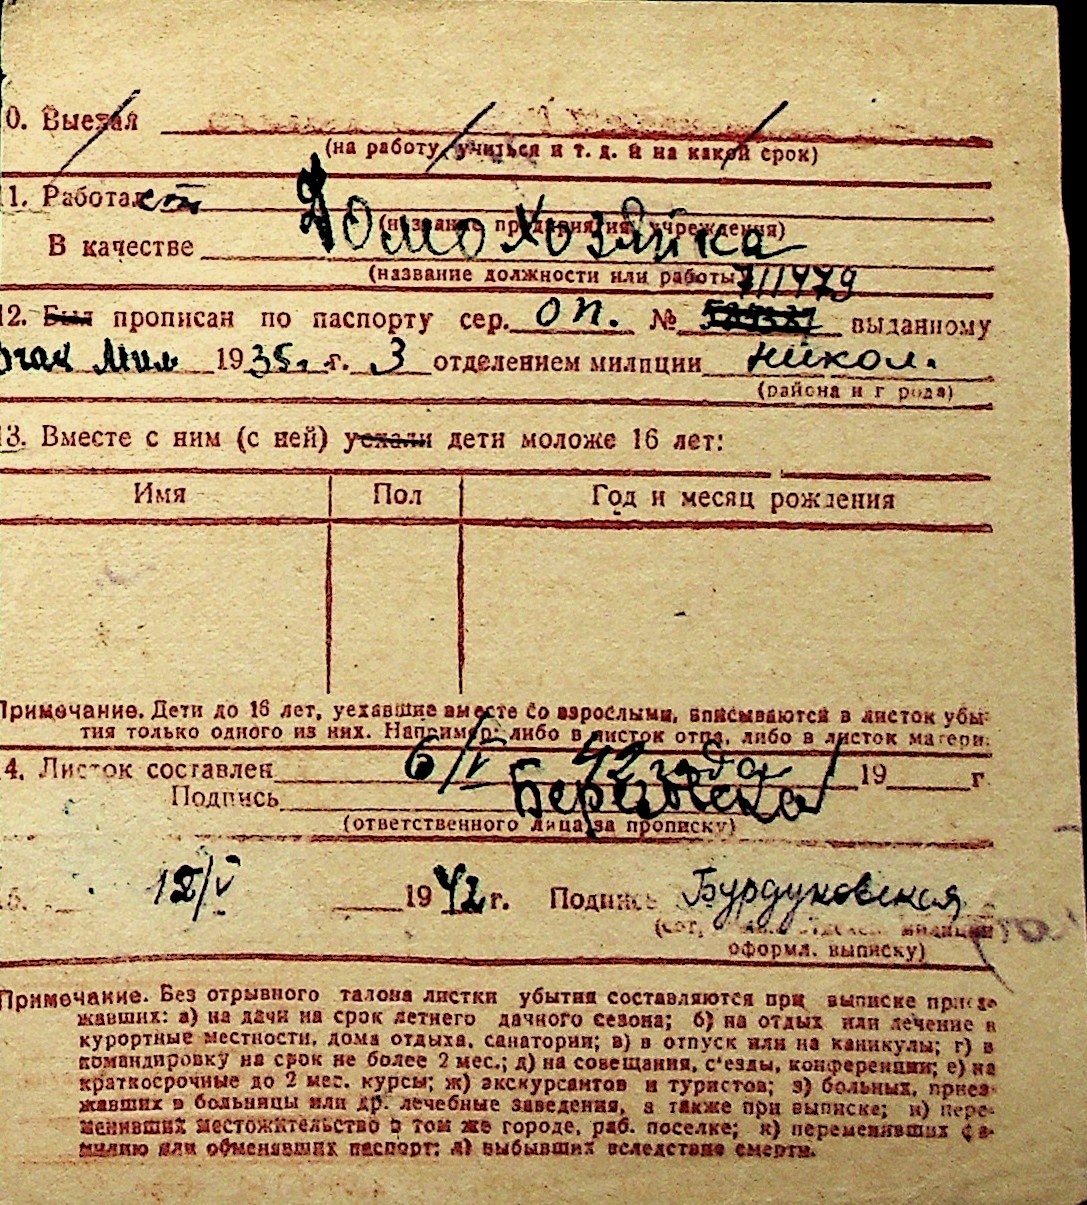 0. Выехал
(на работу, учиться и т. д. и на какой срок)
1. Работает
(название предприятия, учреждения)
Домохозяйка
В качестве
(название должности или работы)
711479
12. Был прописан по паспорту сер. ОП. № выданному
1935 г. 3 отделением милиции Никол.
(района и города)
13. Вместе с ним (с ней) уехали дети моложе 16 лет:
Имя Пол Год и месяц рождения
Примечание. Дети до 16 лет, уехавшие вместе со взрослыми, вписываются в листок убы-
тия только одного из них. Например: либо в листок отца, либо в листок матери.
4. Листок составлен 6/V 42 года 19 г
Подпись
(ответственного лица за прописку)
5. 1942 г. Подпись Бурдуковская
милиции
оформл. выписку)
Примечание. Без отрывного талона листки убытия составляются при выписке приез-
жавших: а) на дачи на срок летнего дачного сезона; б) на отдых или лечение в
курортные местности, дома отдыха, санатории; в) в отпуск или на каникулы; г) в
командировку на срок не более 2 мес.; д) на совещания, с'езды, конференции; е) на
краткосрочные до 2 мес. курсы; ж) экскурсантов и туристов; з) больных, приез-
жавших в больницы или др. лечебные заведения, а также при выписке; и) пере-
менивших местожительство в том же городе, раб. поселке; к) переменивших фа-
милию или обменявших паспорт; л) выбывших вследствие смерти.